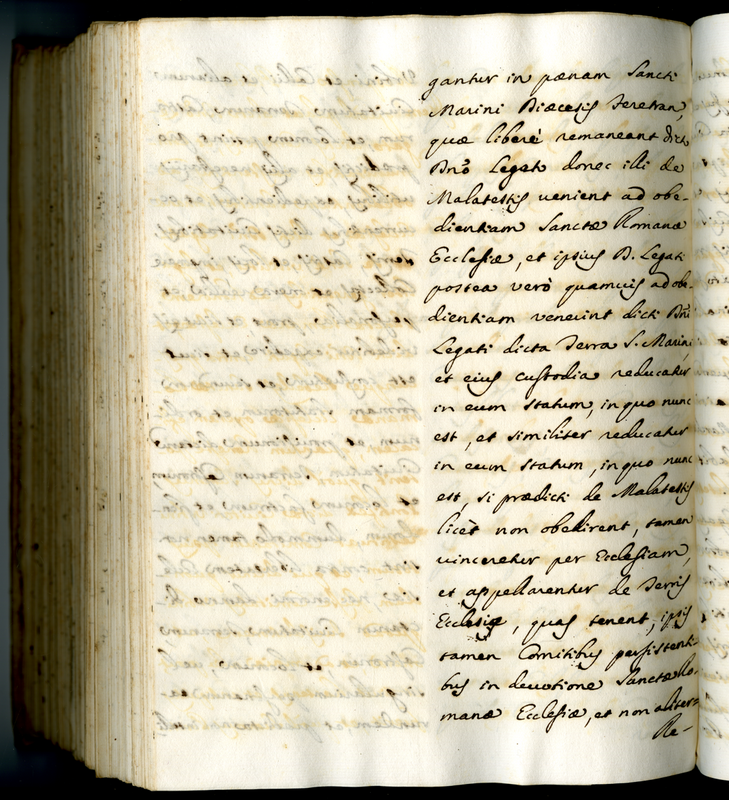 gantur in pœnam Sancti
Marini Diœcesis Feretran,
quæ liberè remaneant dict
Dnō Legat donec illi de
Malatestis uenient ad obe-
dientiam Sanctæ Romanæ
Ecclesiæ, et ipsius D. Legati
postea verò quamuis ad obe-
dientiam venerint dicti Dn̄i
Legati dicta Terra S. Marini
et eius custodia reducatur
in eum statum, in quo nunc
est, et similiter reducatur
in eum statum, in quo nunc
est, si prædicti de Malatestis
licèt non obedirent, tamen
uincerentur per Ecclesiam,
et appellarentur de Terris
Ecclesiæ, quas tenent, ipsis
tamen Comitibus persistenti-
bus in deuotione Sanctæ Ro-
manæ Ecclesiæ, et non aliter
Re-